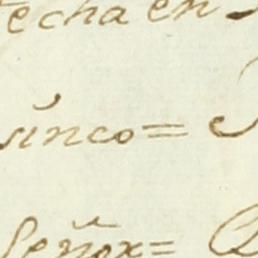 echa en
sinco =
Señor =